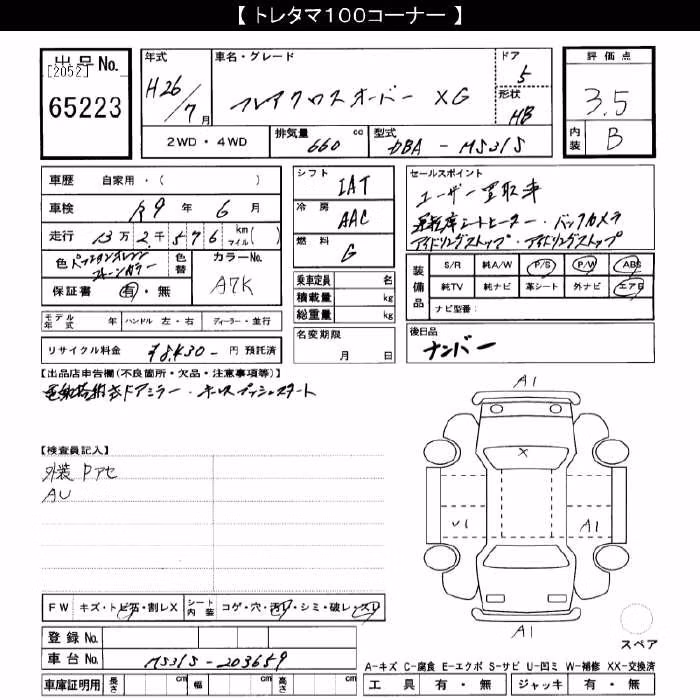 【 トレタマ100コーナー 】
出品 No.
[2052]
65223
年式
H26/7月
車名・グレード
フレアクロスオーバー XG
ドア
5
形状
HB
2WD・4WD
排気量
660 cc
型式
DBA - MS31S
評価点
3.5
内装
B
車歴 自家用・( )
車検 R9年 6月
走行 13万 2千 5 7 6 km マイル( )
色
2トーンカラー
色替
カラーNo.
A7K
保証書 有・無
モデル年式 年
ハンドル 左・右
ディーラー・並行
リサイクル料金 ¥8,430- 円 預託済
シフト
IAT
冷房
AAC
燃料
G
乗車定員 名
積載量 kg
総重量 kg
名変期限
月 日
セールスポイント
ユーザー買取車
運転席シートヒーター・バックカメラ
アイドリングストップ・アイドリングストップ
装備品
S/R 純A/W P/S P/W ABS
純TV 純ナビ 革シート 外ナビ エアB
ナビ型番:
後日品
ナンバー
【出品店申告欄(不良箇所・欠品・注意事項等)】
電動格納式ドアミラー・キーレスプッシュスタート
【検査員記入】
外装 Pアセ
AU
A1
X
U1
A1
A1
スペア
FW キズ・トビ石・割レX
シート内装 コゲ・穴・汚レ・シミ・破レ・スレ
登録 No.
車台 No. MS31S-203659
車庫証明用 長さ cm 幅 cm 高さ cm
A-キズ C-腐食 E-エクボ S-サビ U-凹ミ W-補修 XX-交換済
工具 有・無 ジャッキ 有・無